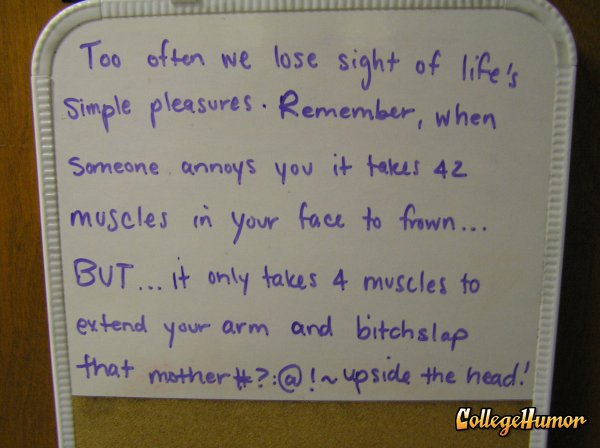 Too often we lose sight of life's
simple pleasures. Remember, when
someone annoys you it takes 42
muscles in your face to frown...
BUT... it only takes 4 muscles to
extend your arm and bitchslap
that mother#?:@!~ upside the head!
CollegeHumor